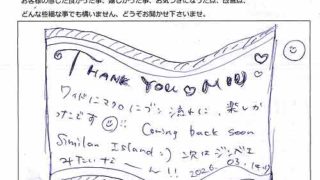 お客様の感じた良かった事、嬉しかった事、お気づきになった点、改善点、
どんな些細な事でも構いません、どうぞお聞かせ下さいませ。
THANK YOU
ワイドにマクロに
流れに、楽しか
ったです
Coming back soon
Similan Island :) 次はジンベエ
みたいな〜ん!!
2026. 03.